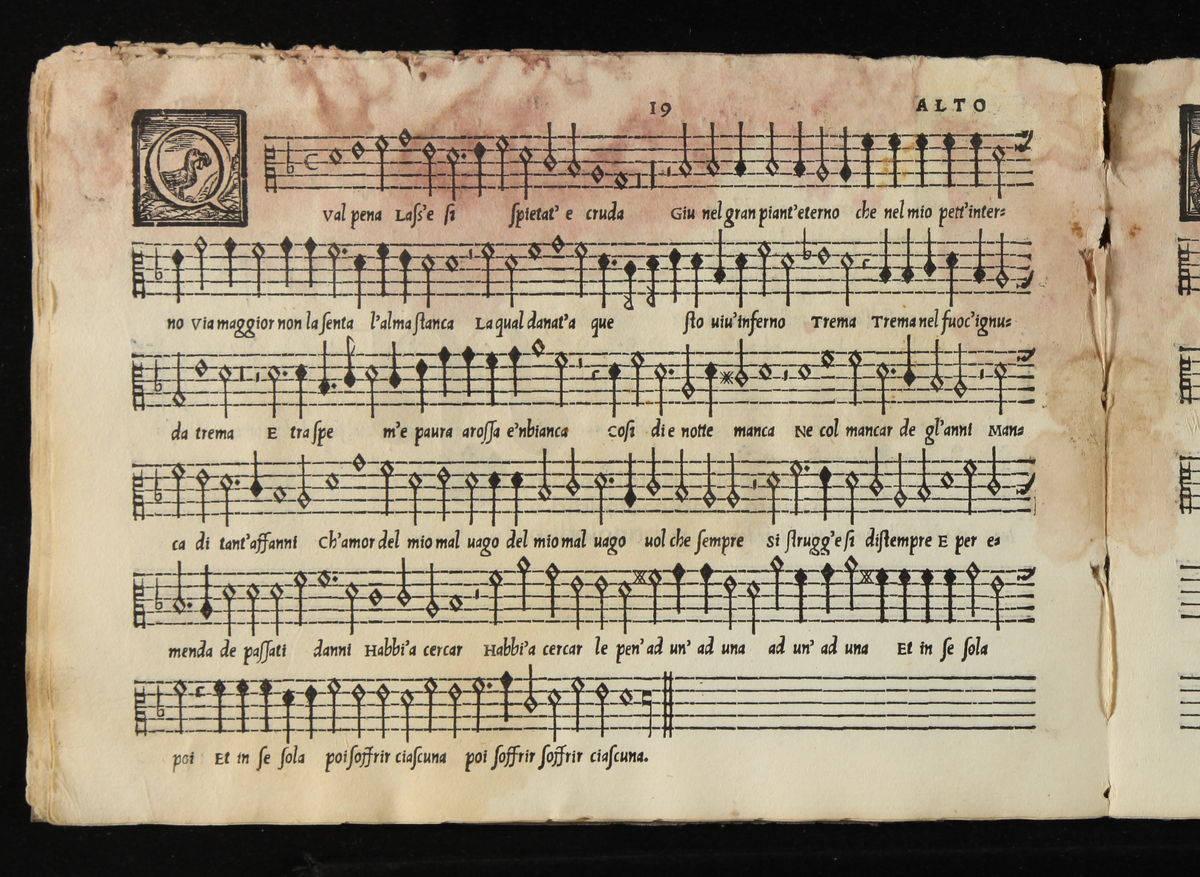 19
ALTO
QVal pena Lass'e si spietat' e cruda Giu nel gran piant'eterno che nel mio pett'inter=
no Via maggior non la senta l'alma stanca La qual danat'a que sto uiu'inferno Trema Trema nel fuoc'ignu=
da trema E tra spe m'e paura arossa e'nbianca Cosi di e notte manca Ne col mancar de gl'anni Man=
ca di tant'affanni Ch'amor del mio mal uago del mio mal uago uol che sempre si strugg'e si distempre E per e=
menda de passati danni Habbi'a cercar Habbi'a cercar le pen' ad un' ad una ad un' ad una Et in se sola
poi Et in se sola poi soffrir ciascuna poi soffrir soffrir ciascuna.